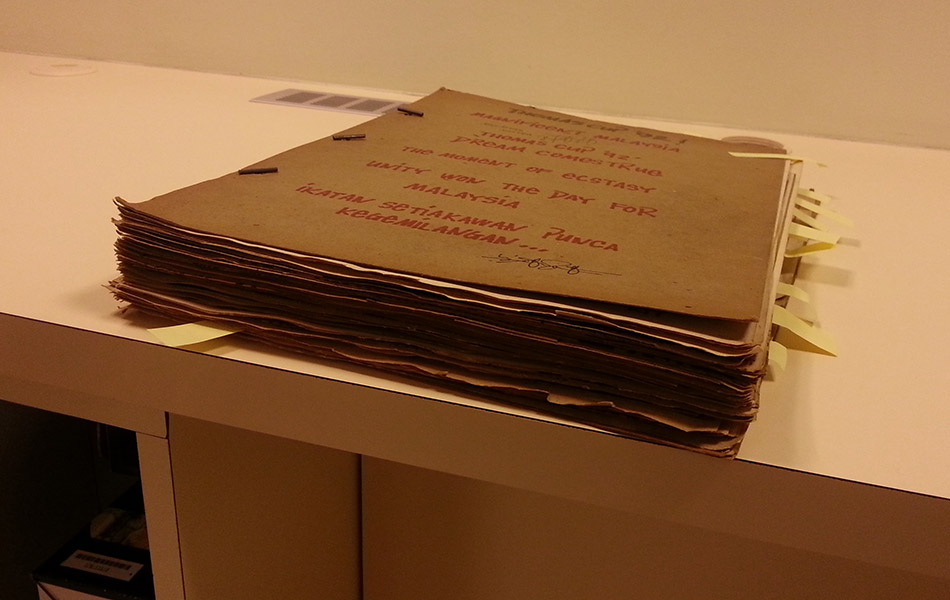 THOMAS CUP '92.!
MAGNIFICENT MALAYSIA
THOMAS CUP '92.
DREAM COMESTRUE
THE MOMENT OF ECSTASY
UNITY WON THE DAY FOR
MALAYSIA
IKATAN SETIAKAWAN PUNCA
KEGEMILANGAN...